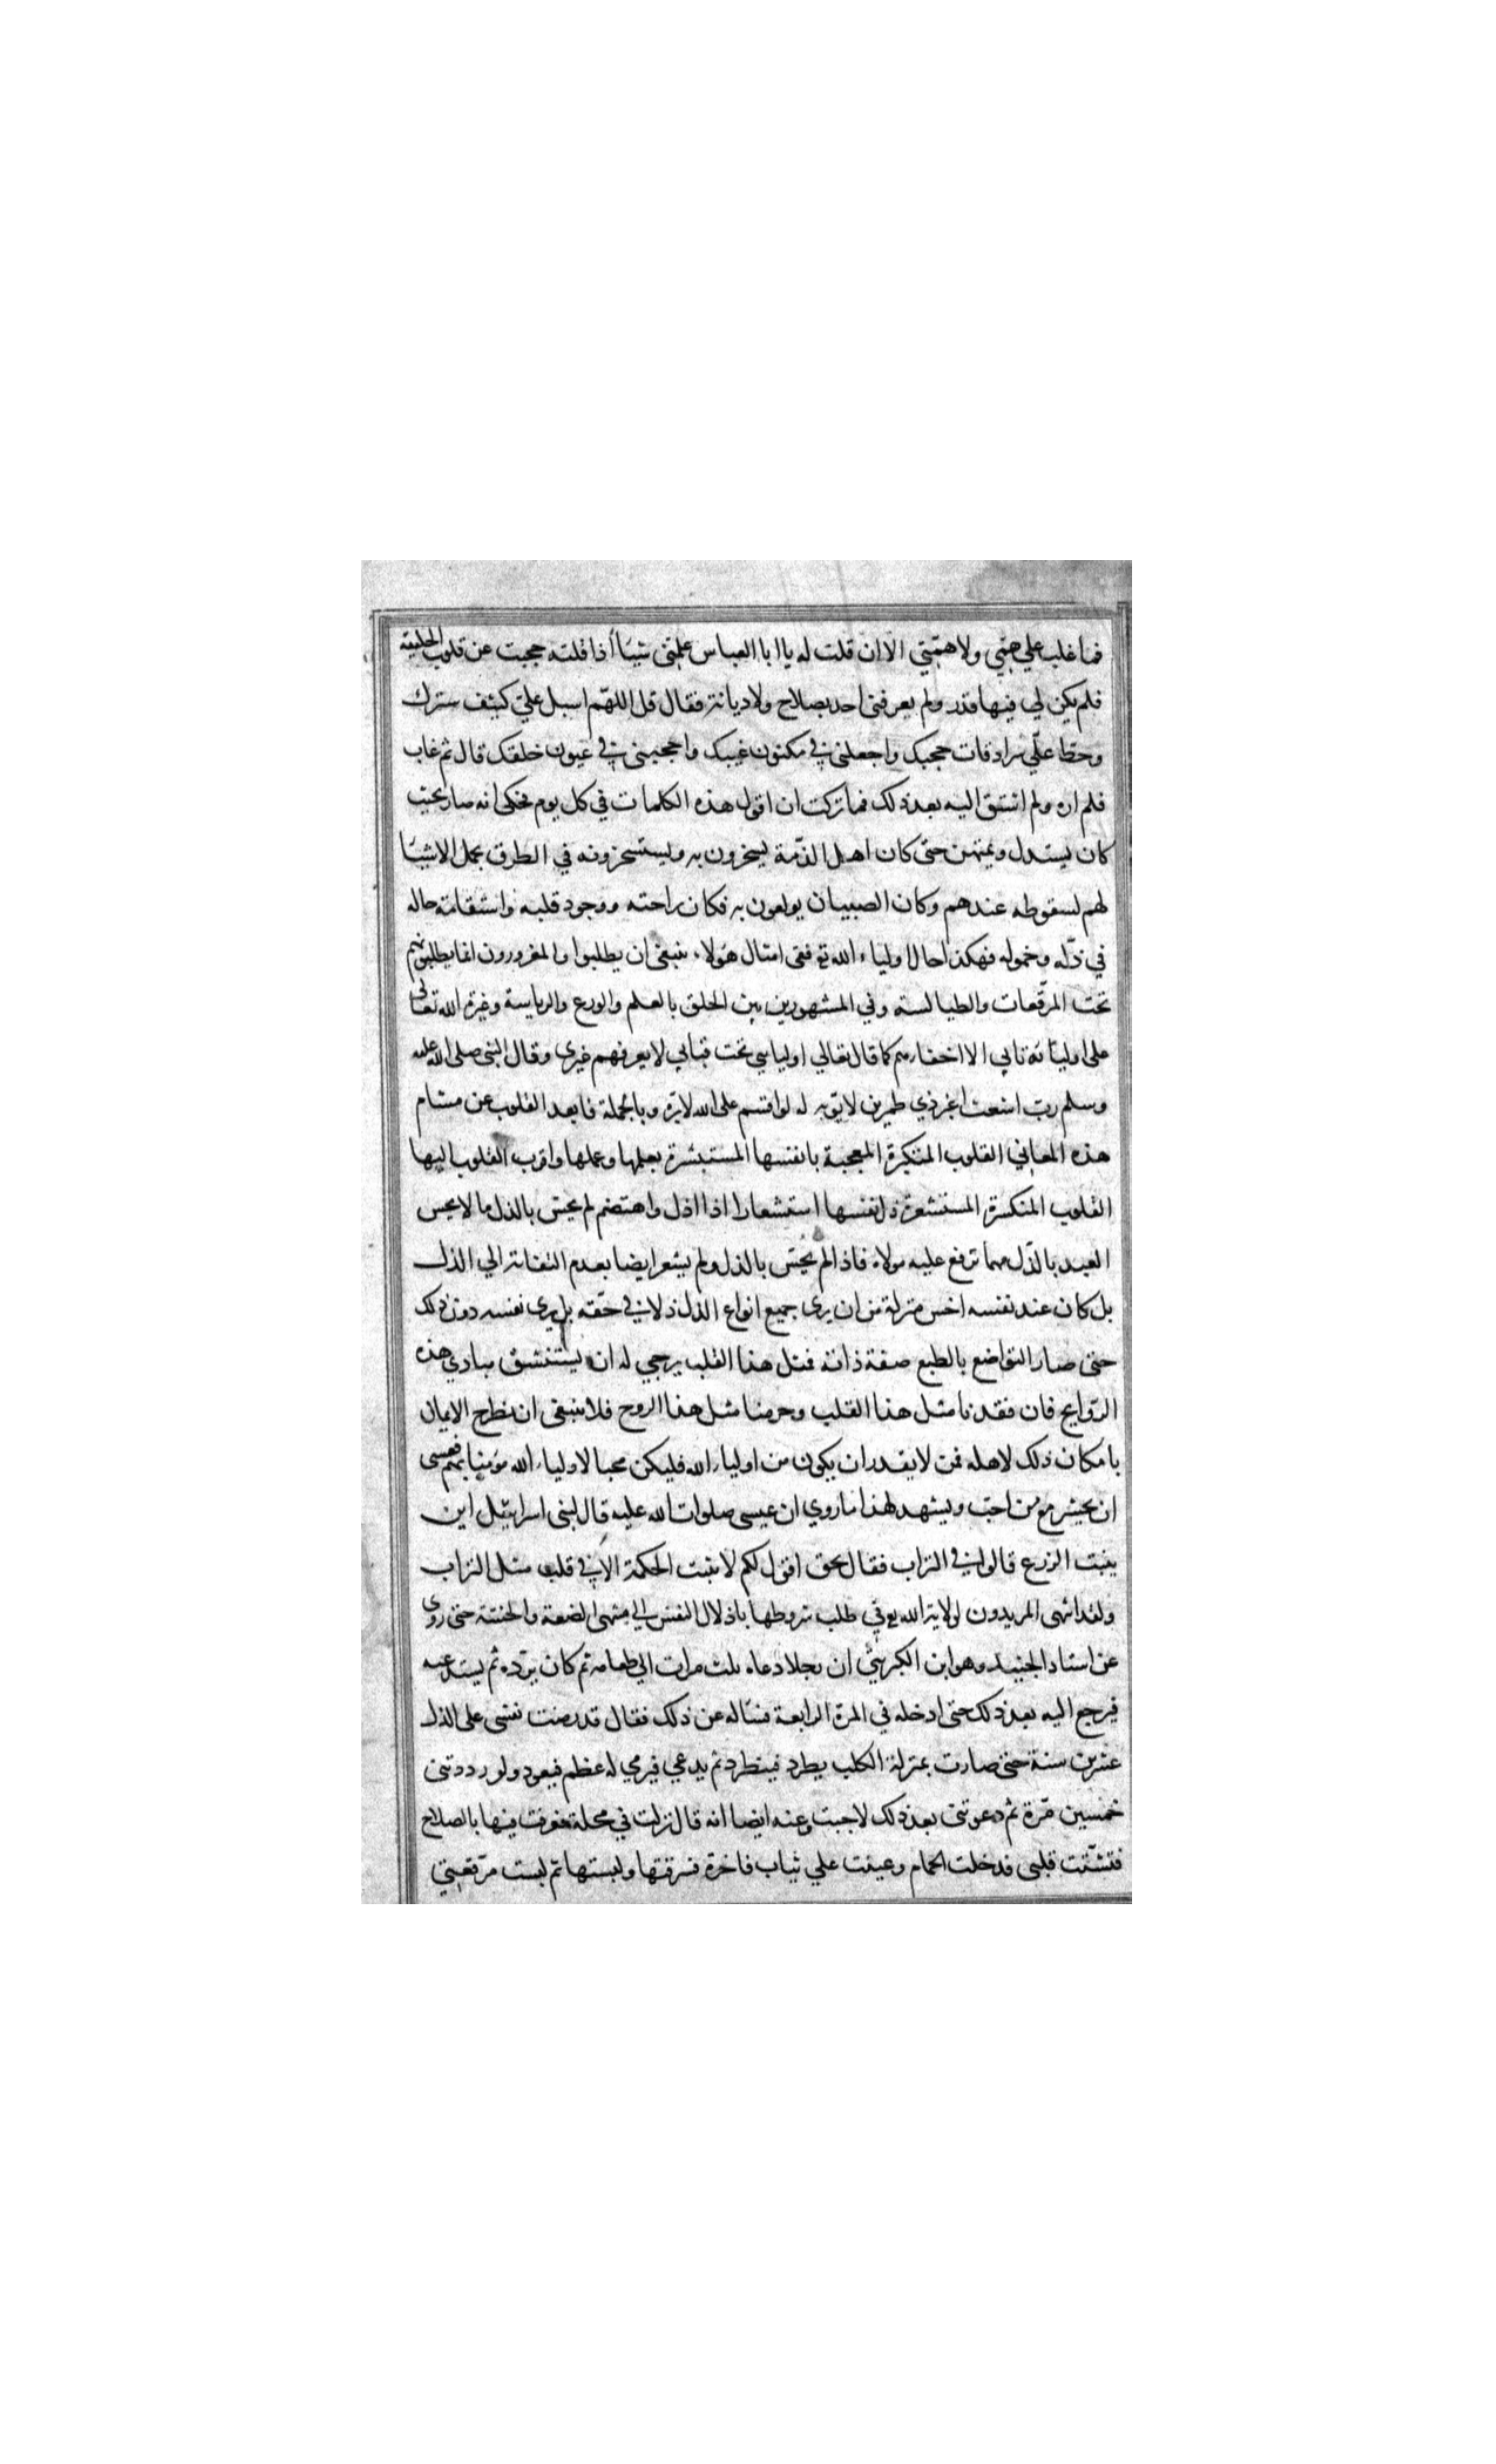 فما غلب علي همي ولا همتي الا ان قلت له يا ابا العباس علمني شيئا اذا قلته حجبت عن قلوب الخليقة
فلم يكن لي فيها قدر ولم يعرفني احد بصلاح ولا ديانة فقال قل اللهم اسبل علي كثيف سترك
وحط علي سرادقات حجبك واجعلني في مكنون غيبك واحجبني في عيون خلقك قال ثم غاب
فلم اره ولم اشتق اليه بعد ذلك فما تركت ان اقول هذه الكلمات في كل يوم فحكي انه صار بحيث
كان يستذل ويمتهن حتى كان اهل الذمة يسخرون به ويستسخرونه في الطرق بحمل الاشيا
لهم لسقوطه عندهم وكان الصبيان يولعون به فكان راحته ووجود قلبه واستقامة حاله
في ذله وخموله فهكذا حال اولياء الله تع ففي امثال هولاء ينبغي ان يطلبوا والمغرورون انما يطلبونهم
تحت المرقعات والطيالسة وفي المشهورين بين الخلق بالعلم والورع والرياسة وغيرة الله تعالى
على اوليائه تابي الا اخفارهم كما قال تعالي اوليايي تحت قبابي لا يعرفهم غيري وقال النبي صلى الله عليه
وسلم رب اشعث اغبر ذي طمرين لا يؤبه له لو اقسم على الله لابره وبالجملة فابعد القلوب عن مشام
هذه المعاني القلوب المتكبرة المعجبة بانفسها المستبشرة بعلمها وعملها واقرب القلوب اليها
القلوب المنكسرة المستشعرة ذل نفسها استشعارا اذا اذل واهتضم لم يحس بالذل ما لا يحس
العبد بالذل مهما ترفع عليه مولاه فاذا لم يحس بالذل ولم يشعر ايضا بعدم التفاته الي الذل
بل كان عند نفسه اخس منزلة من ان يرى جميع انواع الذل ذلا في حقه بل يرى نفسه دون ذلك
حتى صار التواضع بالطبع صفة ذاته فمثل هذا القلب يرجي له ان يستنشق مبادي هذه
الروايح فان فقدنا مثل هذا القلب وحرمنا مثل هذا الروح فلا ينبغي ان يطرح الايمان
بامكان ذلك لاهله فمن لا يقدر ان يكون من اولياء الله فليكن محبا لاولياء الله مؤمنا بهم فعسى
ان يحشر مع من احب ويشهد لهذا ما روي ان عيسى صلوات الله عليه قال لبني اسرائيل اين
ينبت الزرع قالوا في التراب فقال بحق اقول لكم لا تنبت الحكمة الا في قلب مثل التراب
ولقد انتهى المريدون لولاية الله تع في طلب شروطها باذلال النفس الي منتهى الضعة والخسة حتى روى
عن استاد الجنيد وهو ابن الكريبي ان رجلا دعاه ثلث مرات الي طعامه ثم كان يرده ثم يستدعيه
فيرجع اليه بعد ذلك حتى ادخله في المرة الرابعة فساله عن ذلك فقال قد رضت نفسي على الذل
عشرين سنة حتى صارت بمنزلة الكلب يطرد فينطرد ثم يدعي فيرمي له عظم فيعود ولو رددتني
خمسين مرة ثم دعوتني بعد ذلك لاجبت وعنه ايضا انه قال نزلت في محلة فعرفت فيها بالصلاح
فتشتت قلبي فدخلت الحمام وعينت علي ثياب فاخرة فسرقتها ولبستها ثم لبست مرقعتي